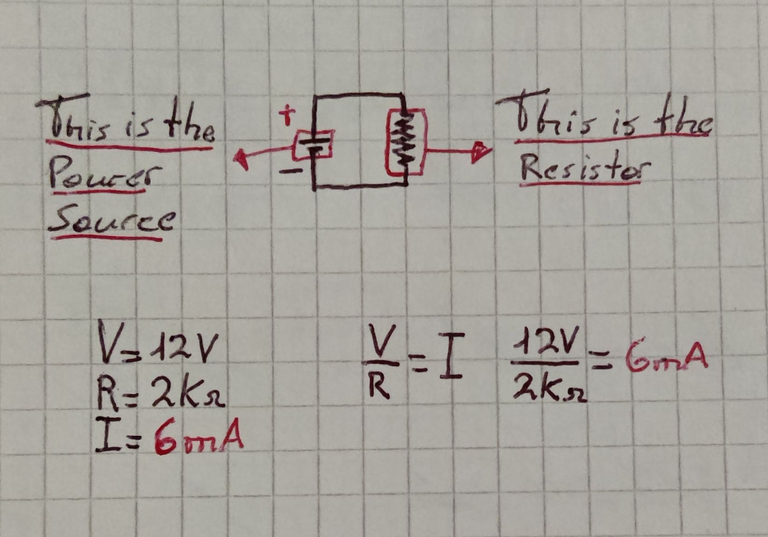 This is the
Power
Source
+
−
This is the
Resistor
V = 12V
R = 2KΩ
I = 6mA
V/R = I
12V/2KΩ = 6mA